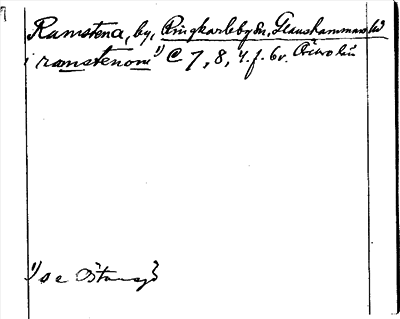 Ramstena, by, Ringkarleby sn, Glanshammars hd
i ramstenom 1) C 7, 8, 4. f. 6v. Örebro län
1) se Östansjö